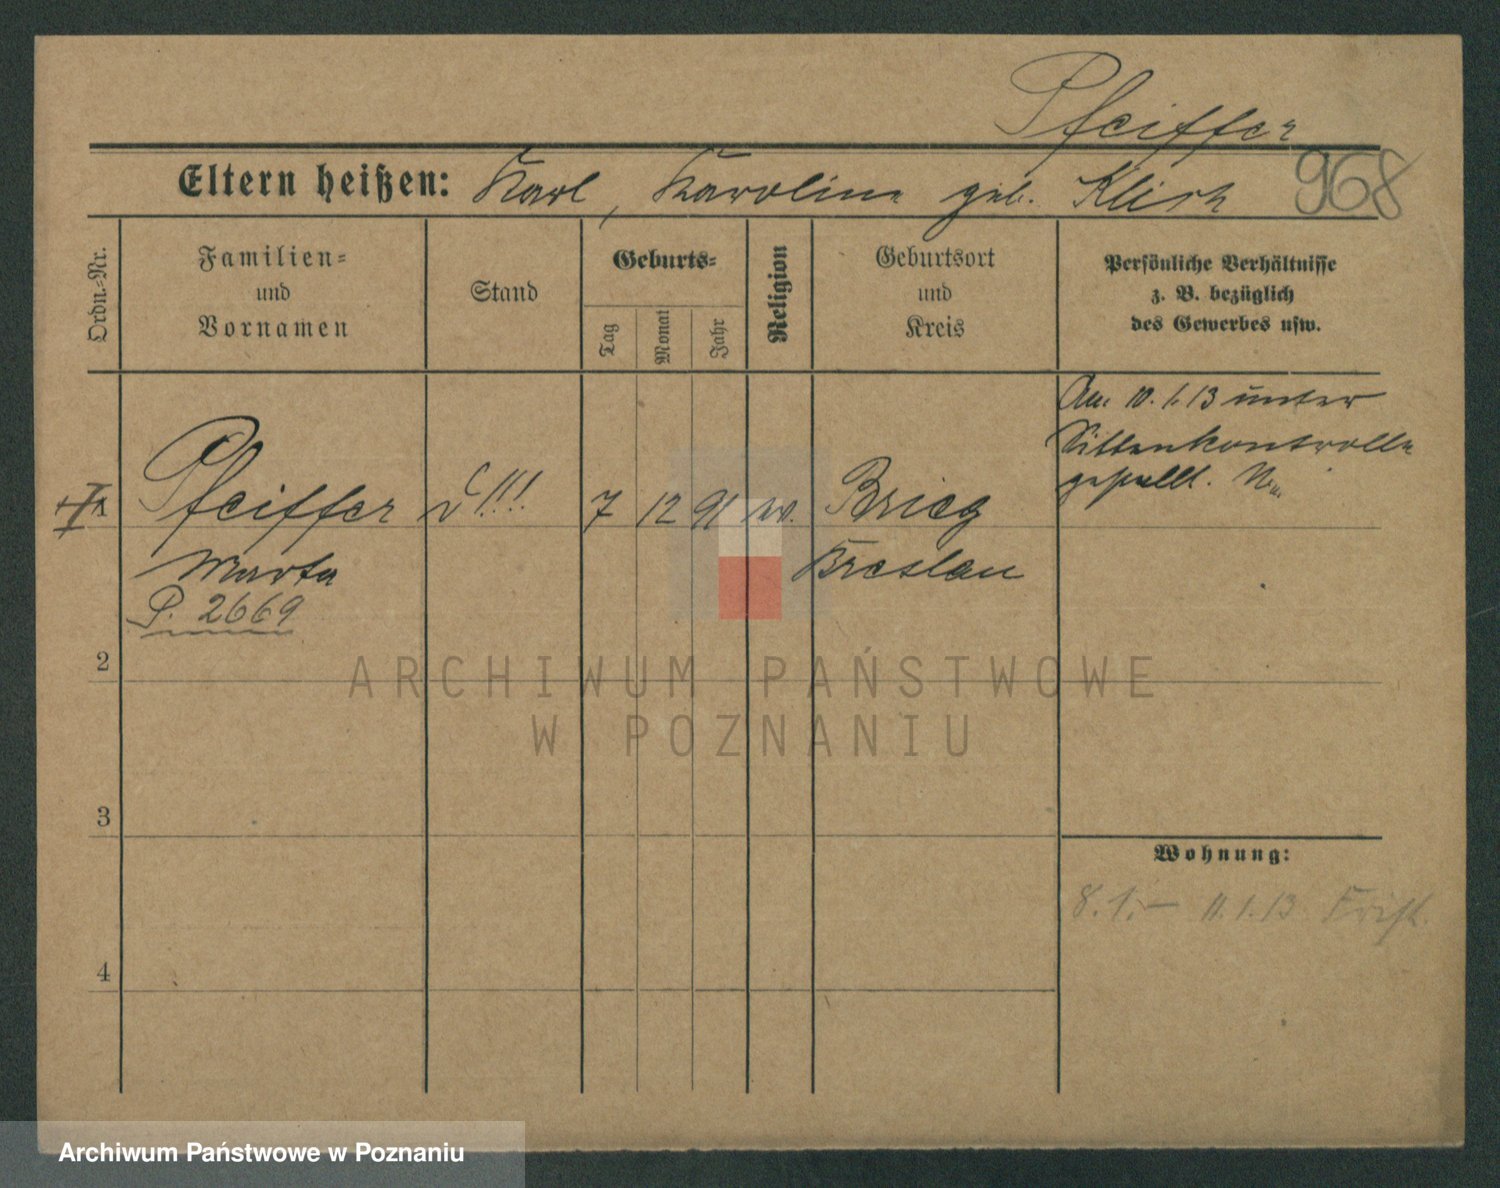 Pfeiffer
Eltern heißen: Karl, Karoline geb. Klisch
968
Ordn.-Nr.
Familien-
und
Vornamen
Stand
Geburts-
Tag
Monat
Jahr
Religion
Geburtsort
und
Kreis
Persönliche Verhältnisse
z. B. bezüglich
des Gewerbes usw.
Am 10.1.13 unter
Sittenkontrolle
gestellt.
I
Pfeiffer
7 12 91 ev.
Brieg
Marta
Breslau
P. 2669
2
ARCHIWUM PAŃSTWOWE
W POZNANIU
3
Wohnung:
8.1.— 11.1.13
4
Archiwum Państwowe w Poznaniu